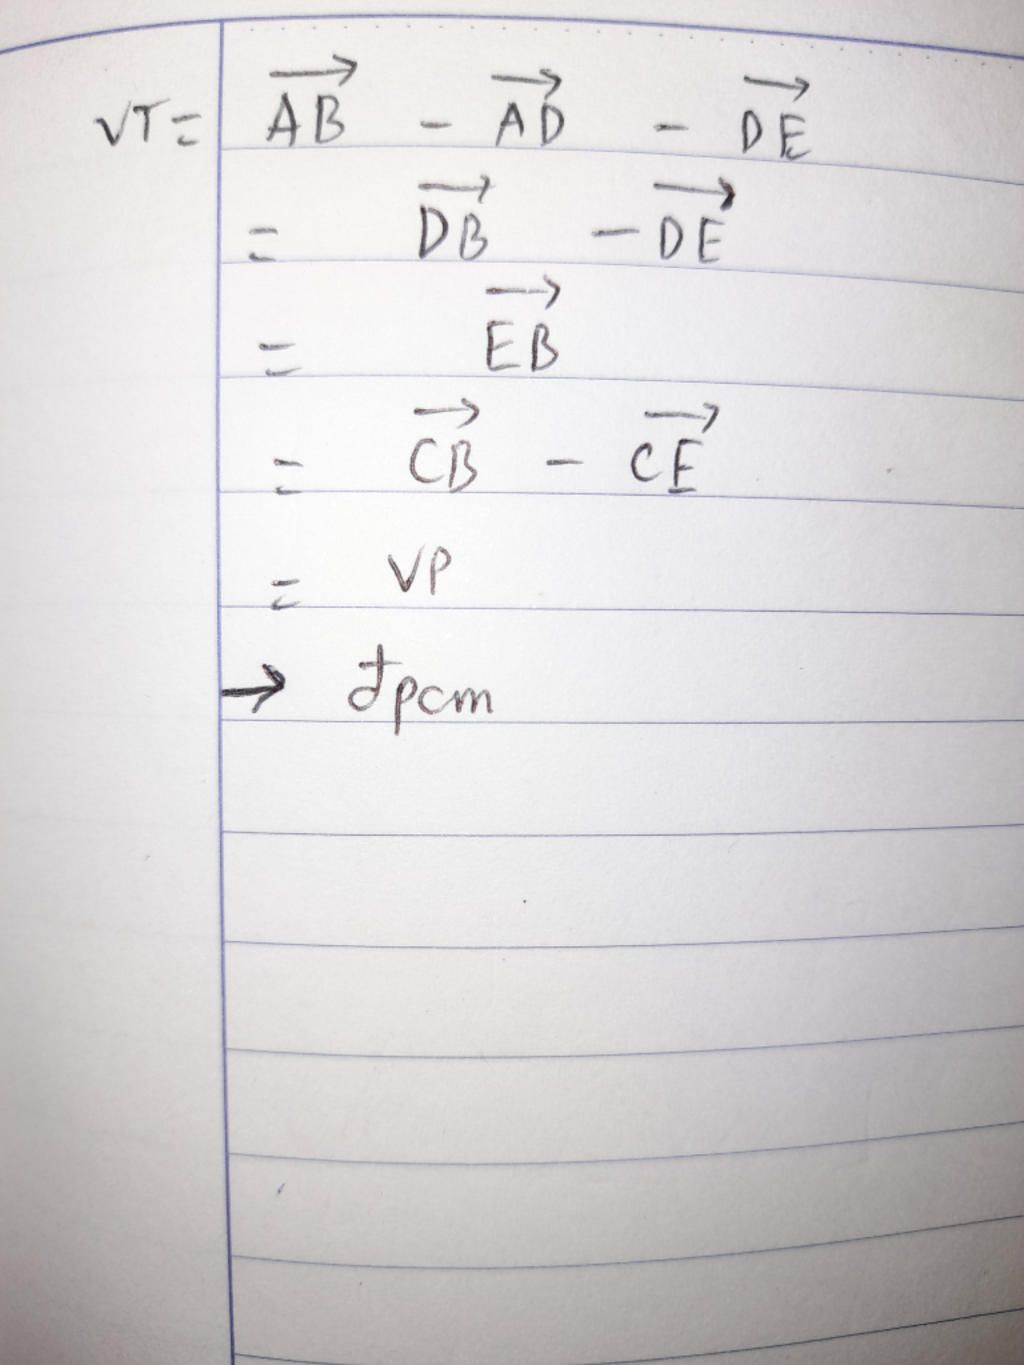 VT = AB - AD - DE
= DB - DE
= EB
= CB - CE
= VP
→ đpcm